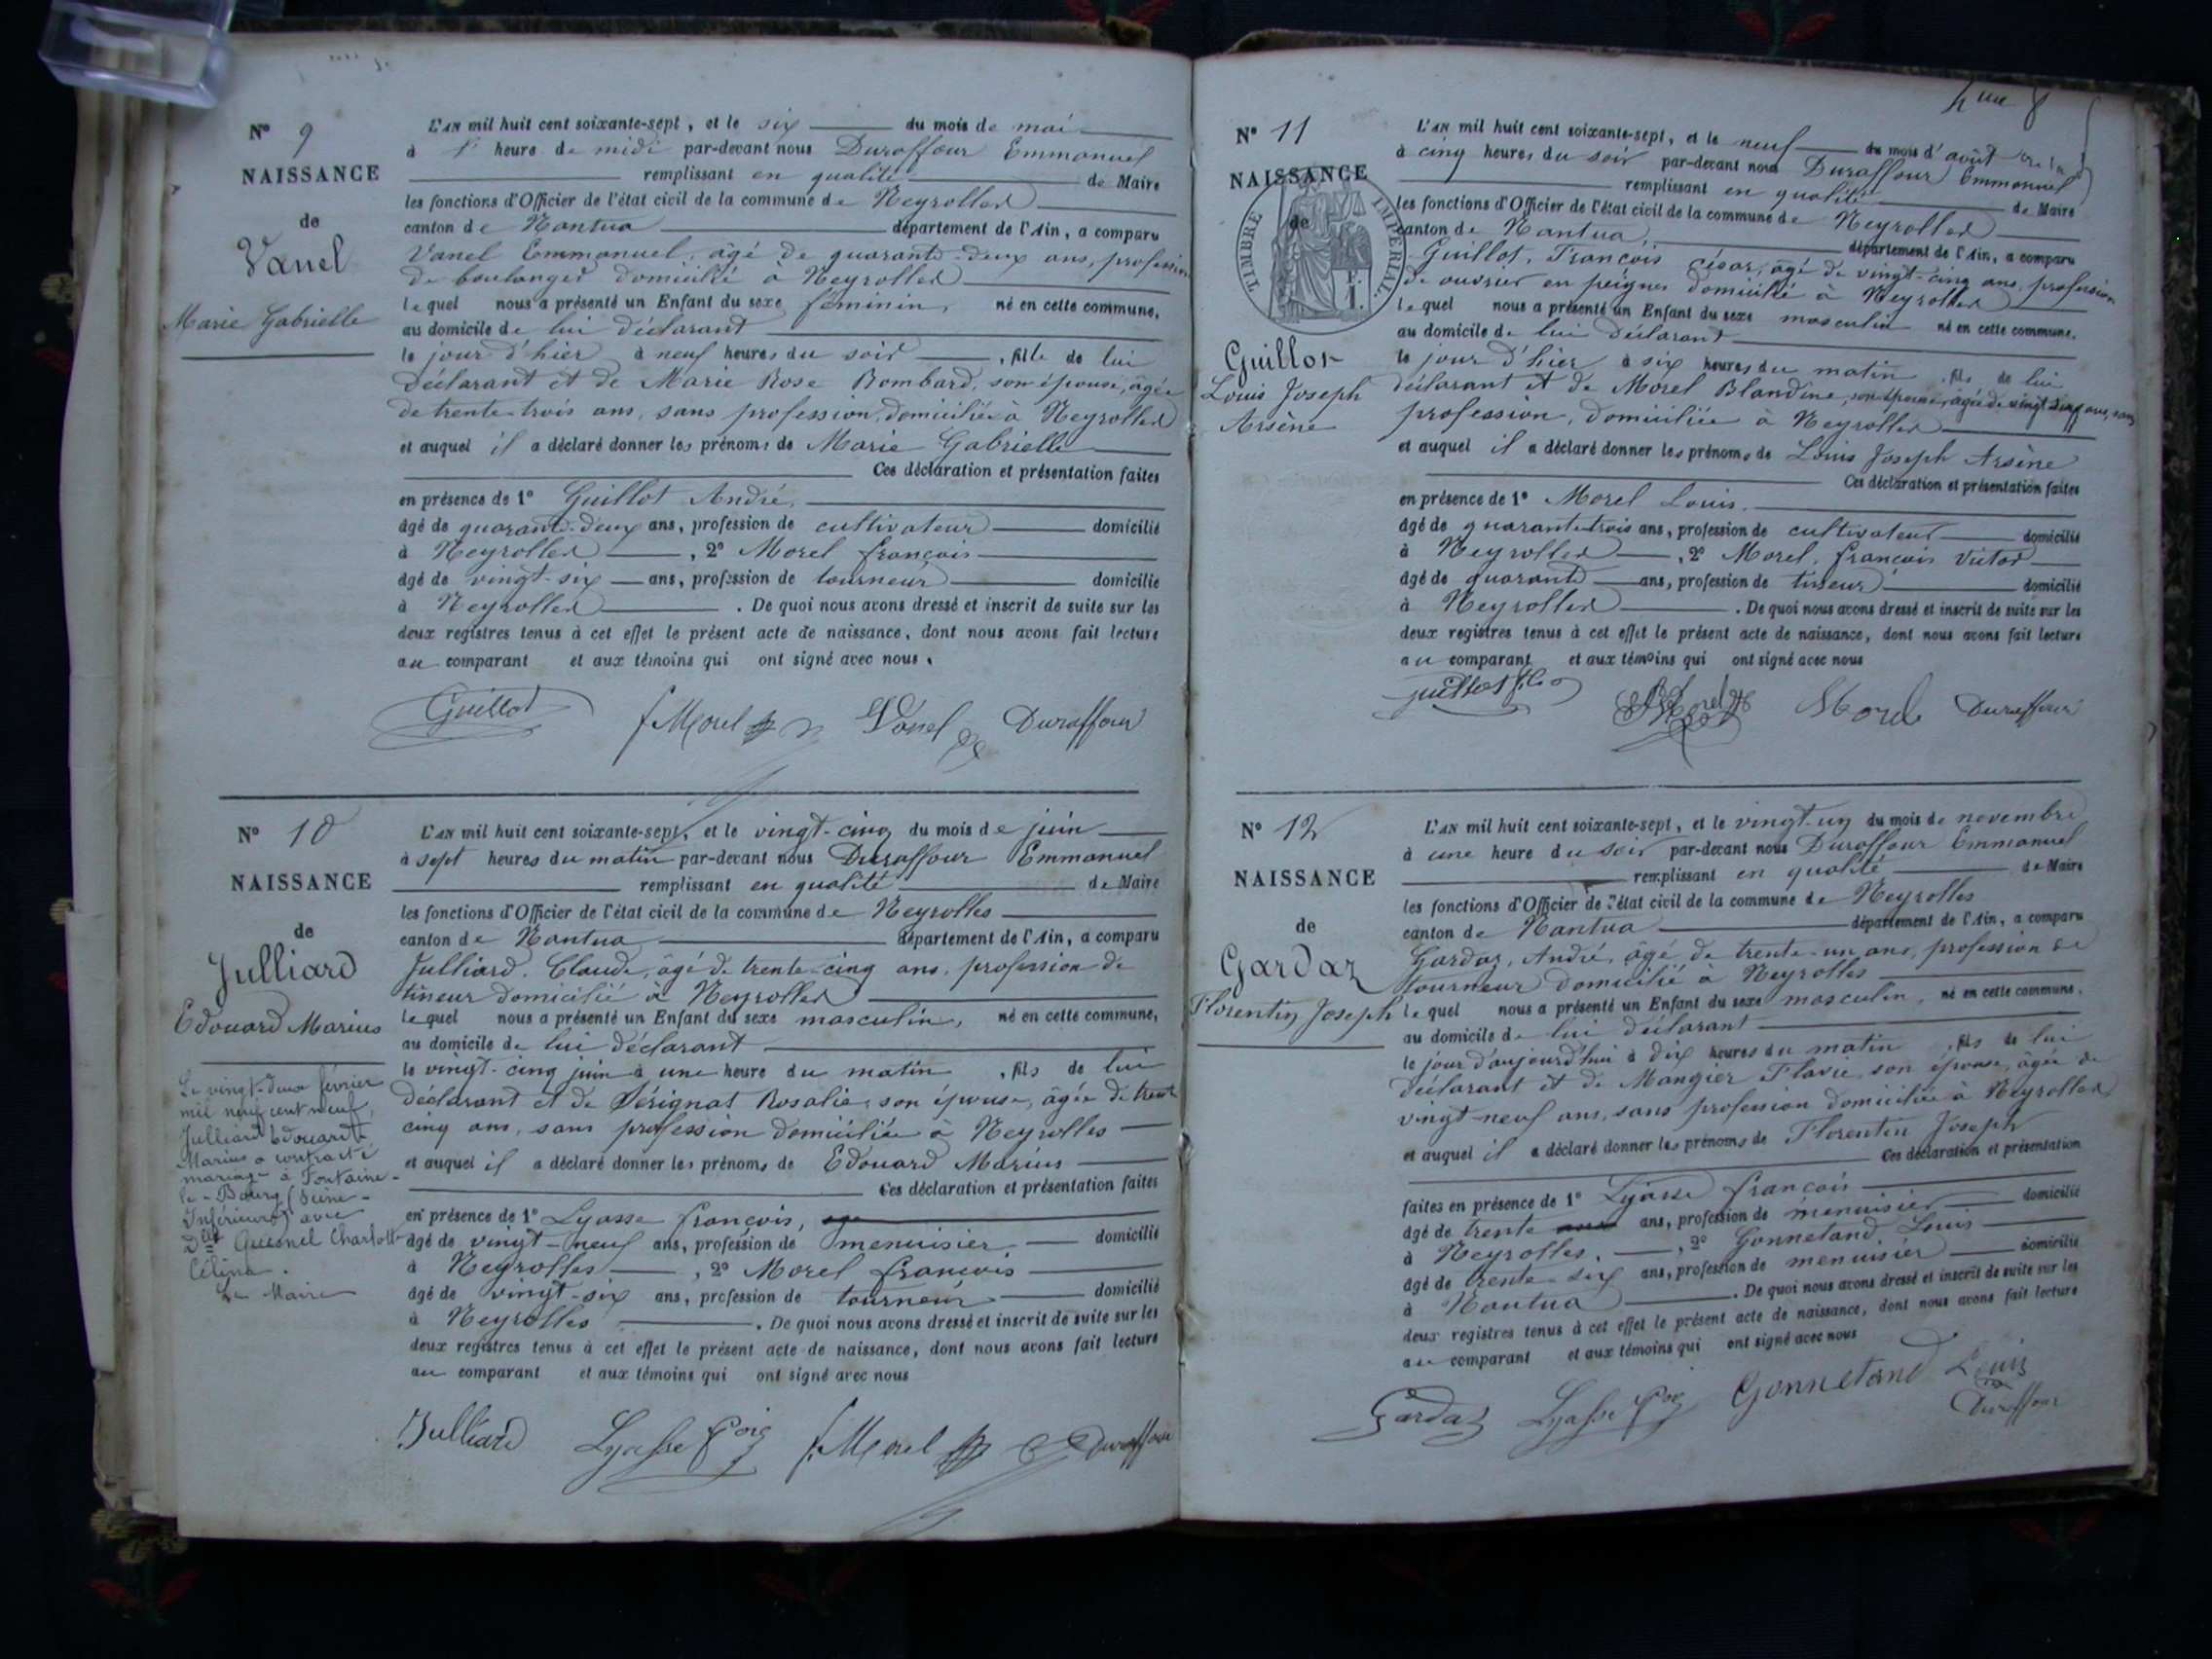 N° 9
NAISSANCE
de
Vanel
Marie Gabrielle
L'AN mil huit cent soixante-sept, et le six du mois de mai
à 1 heure de midi par-devant nous Duraffour Emmanuel
remplissant en qualité de Maire
les fonctions d'Officier de l'état civil de la commune de Neyrolles
canton de Nantua département de l'Ain, a comparu
Vanel Emmanuel, âgé de quarante-deux ans, profession
de boulanger domicilié à Neyrolles
lequel nous a présenté un Enfant du sexe féminin, né en cette commune,
au domicile de lui déclarant
le jour d'hier à neuf heures du soir, fille de lui
déclarant et de Marie Rose Rombard, son épouse, âgée
de trente-trois ans, sans profession, domiciliée à Neyrolles
et auquel il a déclaré donner les prénoms de Marie Gabrielle
Ces déclaration et présentation faites
en présence de 1° Guillot André,
âgé de quarante-deux ans, profession de cultivateur domicilié
à Neyrolles, 2° Morel françois
âgé de vingt-six ans, profession de tourneur domicilié
à Neyrolles. De quoi nous avons dressé et inscrit de suite sur les
deux registres tenus à cet effet le présent acte de naissance, dont nous avons fait lecture
au comparant et aux témoins qui ont signé avec nous.
Guillot f Morel Vanel Duraffour
N° 10
NAISSANCE
de
Julliard
Edouard Marius
Le vingt-deux février
mil neuf cent neuf,
Julliard Edouard
Marius a contracté
mariage à Fontaine-
le-Bourg (Seine-
Inférieure) avec
Dlle Quesnel Charlotte
Célina.
Le Maire
L'AN mil huit cent soixante-sept, et le vingt-cinq du mois de juin
à sept heures du matin par-devant nous Duraffour Emmanuel
remplissant en qualité de Maire
les fonctions d'Officier de l'état civil de la commune de Neyrolles
canton de Nantua département de l'Ain, a comparu
Julliard, Claude, âgé de trente-cinq ans, profession de
tisseur domicilié à Neyrolles
lequel nous a présenté un Enfant du sexe masculin, né en cette commune,
au domicile de lui déclarant
le vingt-cinq juin à une heure du matin, fils de lui
déclarant et de Sérignat Rosalie, son épouse, âgée de trente
cinq ans, sans profession domiciliée à Neyrolles
et auquel il a déclaré donner les prénoms de Edouard Marius
Ces déclaration et présentation faites
en présence de 1° Lyasse françois,
âgé de vingt-neuf ans, profession de menuisier domicilié
à Neyrolles, 2° Morel françois
âgé de vingt-six ans, profession de tourneur domicilié
à Neyrolles. De quoi nous avons dressé et inscrit de suite sur les
deux registres tenus à cet effet le présent acte de naissance, dont nous avons fait lecture
au comparant et aux témoins qui ont signé avec nous
Julliard Lyasse fois f Morel Duraffour
N° 11
NAISSANCE
de
TIMBRE IMPÉRIAL.
Guillot
Louis Joseph
Arsène
L'AN mil huit cent soixante-sept, et le neuf du mois d'août
à cinq heures du soir par-devant nous Duraffour Emmanuel
remplissant en qualité de Maire
les fonctions d'Officier de l'état civil de la commune de Neyrolles
canton de Nantua, département de l'Ain, a comparu
Guillot, François césar, âgé de vingt-cinq ans, profession
de ouvrier en peignes domicilié à Neyrolles
lequel nous a présenté un Enfant du sexe masculin né en cette commune,
au domicile de lui déclarant
le jour d'hier à six heures du matin, fils de lui
déclarant et de Morel Blandine, son épouse, âgée de vingt ans, sans
profession, domiciliée à Neyrolles
et auquel il a déclaré donner les prénoms de Louis Joseph Arsène
Ces déclaration et présentation faites
en présence de 1° Morel Louis.
âgé de quarante-trois ans, profession de cultivateur domicilié
à Neyrolles, 2° Morel, françois Victor
âgé de quarante ans, profession de tisseur domicilié
à Neyrolles. De quoi nous avons dressé et inscrit de suite sur les
deux registres tenus à cet effet le présent acte de naissance, dont nous avons fait lecture
au comparant et aux témoins qui ont signé avec nous
guillot fils Morel Morel Duraffour
N° 12
NAISSANCE
de
Gardaz
Florentin Joseph
L'AN mil huit cent soixante-sept, et le vingt-un du mois de novembre
à une heure du soir par-devant nous Duraffour Emmanuel
remplissant en qualité de Maire
les fonctions d'Officier de l'état civil de la commune de Neyrolles
canton de Nantua département de l'Ain, a comparu
Gardaz, André, âgé de trente-un ans, profession de
tourneur domicilié à Neyrolles
lequel nous a présenté un Enfant du sexe masculin, né en cette commune,
au domicile de lui déclarant
le jour d'aujourd'hui à dix heures du matin, fils de lui
déclarant et de Mangier Flavie son épouse, âgée de
vingt-neuf ans, sans profession domiciliée à Neyrolles
et auquel il a déclaré donner les prénoms de Florentin Joseph
Ces déclaration et présentation
faites en présence de 1° Lyasse françois
âgé de trente ans, profession de menuisier domicilié
à Neyrolles, 2° Gonnetand Louis
âgé de trente-six ans, profession de menuisier domicilié
à Nantua. De quoi nous avons dressé et inscrit de suite sur les
deux registres tenus à cet effet le présent acte de naissance, dont nous avons fait lecture
au comparant et aux témoins qui ont signé avec nous
Gardaz Lyasse fois Gonnetand Louis
Duraffour